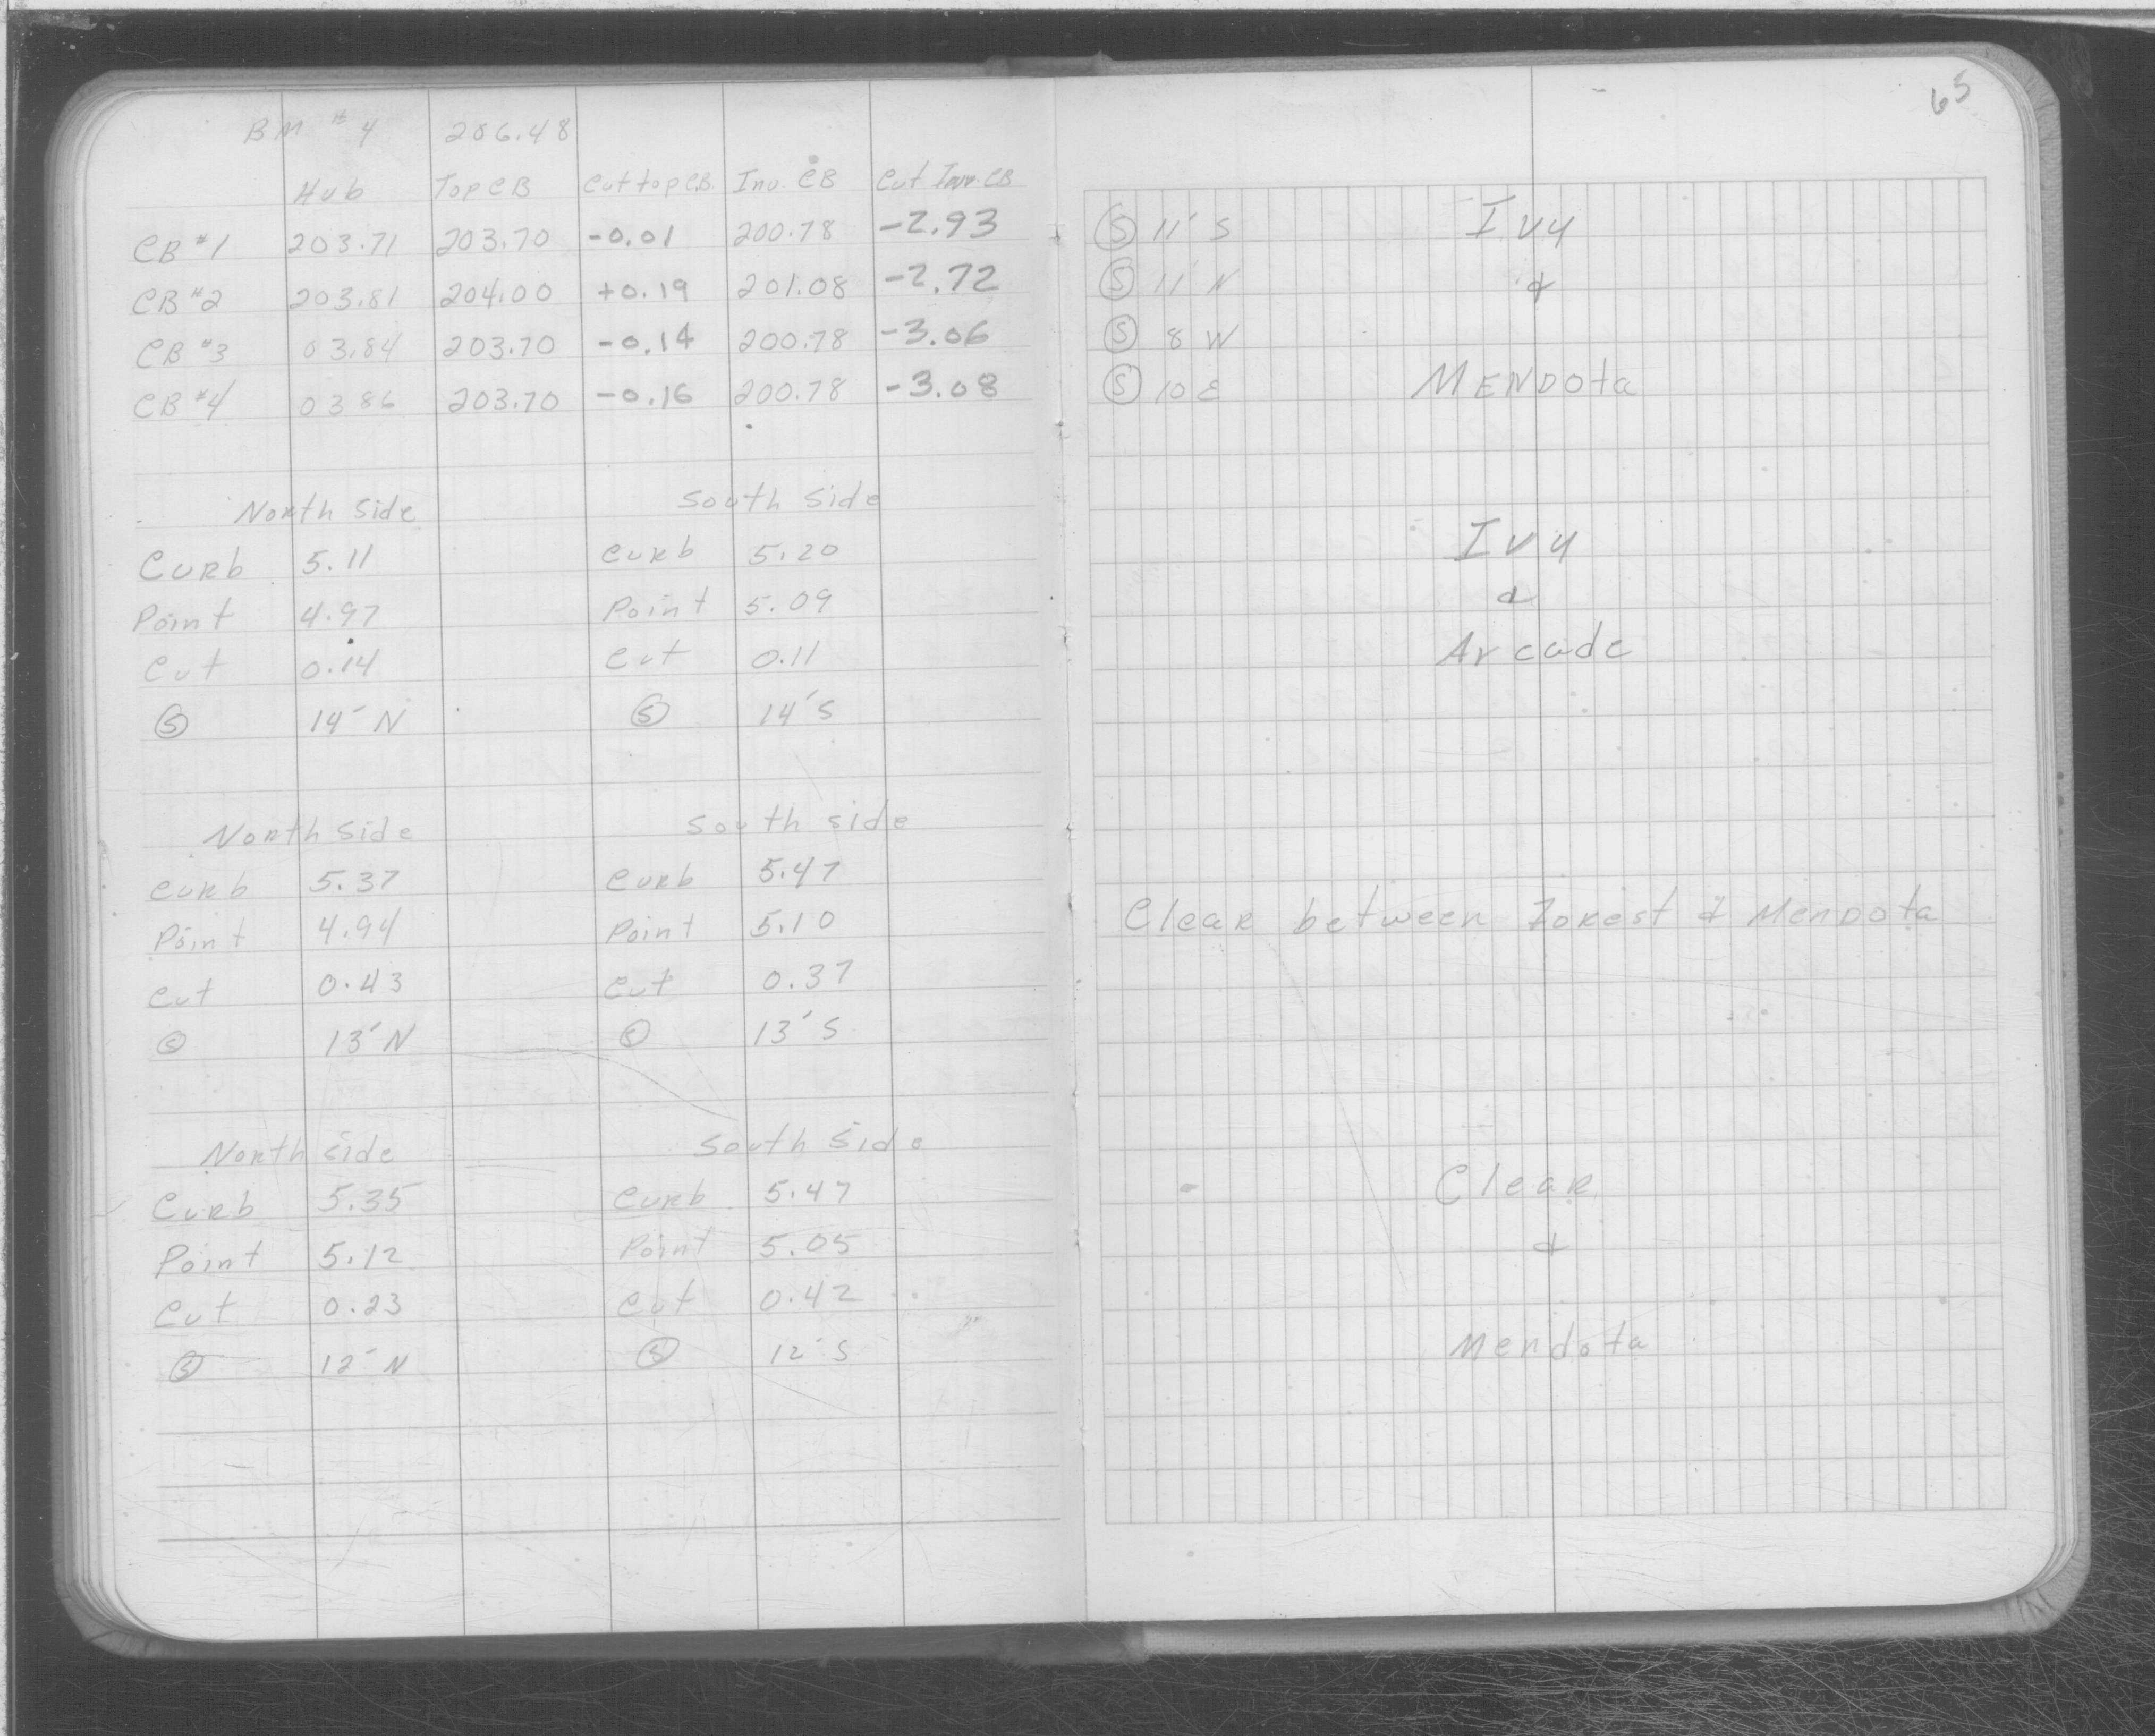 BM #4 206.48
Hub Top CB Cut top CB. Inv. CB Cut Inv. CB
CB #1 203.71 203.70 -0.01 200.78 -2.93
CB #2 203.81 204.00 +0.19 201.08 -2.72
CB #3 03.84 203.70 -0.14 200.78 -3.06
CB #4 03 86 203.70 -0.16 200.78 -3.08
North Side South Side
Curb 5.11 Curb 5.20
Point 4.97 Point 5.09
Cut 0.14 Cut 0.11
Ⓢ 14' N Ⓢ 14' S
North Side South side
Curb 5.37 Curb 5.47
Point 4.94 Point 5.10
Cut 0.43 Cut 0.37
Ⓢ 13' N Ⓢ 13' S
North side South Side
Curb 5.35 Curb 5.47
Point 5.12 Point 5.05
Cut 0.23 Cut 0.42
Ⓢ 12' N Ⓢ 12' S
65
Ⓢ 11' S Ivy
Ⓢ 11' N &
Ⓢ 8 W
Ⓢ 10 E MENDOta
Ivy
&
Arcade
Clear between Forest & MenDota
Clear
&
Mendota